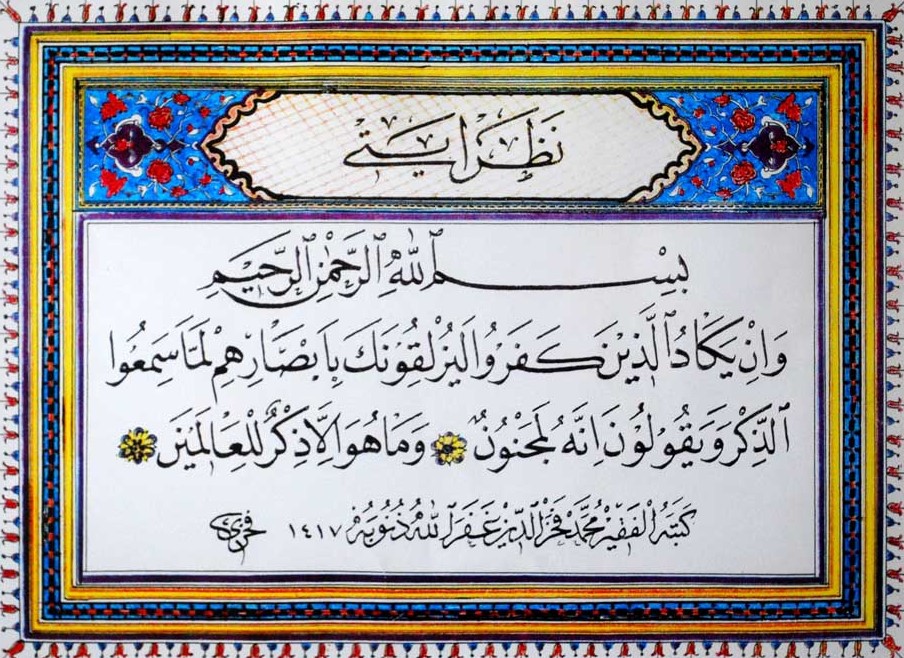 نَظَرْ اٰيَتِى
بِسْمِ ٱللّٰهِ ٱلرَّحْمٰنِ ٱلرَّحِيمِ
وَاِنْ يَكَادُ ٱلَّذِينَ كَفَرُوا لَيُزْلِقُونَكَ بِاَبْصَارِهِمْ لَمَّا سَمِعُوا
ٱلذِّكْرَ وَيَقُولُونَ اِنَّهُ لَمَجْنُونٌ وَمَا هُوَ اِلَّا ذِكْرٌ لِلْعَالَمِينَ
كَتَبَهُ ٱلْفَقِيرُ مُحَمَّدْ فَخْرُ ٱلدِّينْ غَفَرَ ٱللّٰهُ ذُنُوبَهُ ١٤١٧